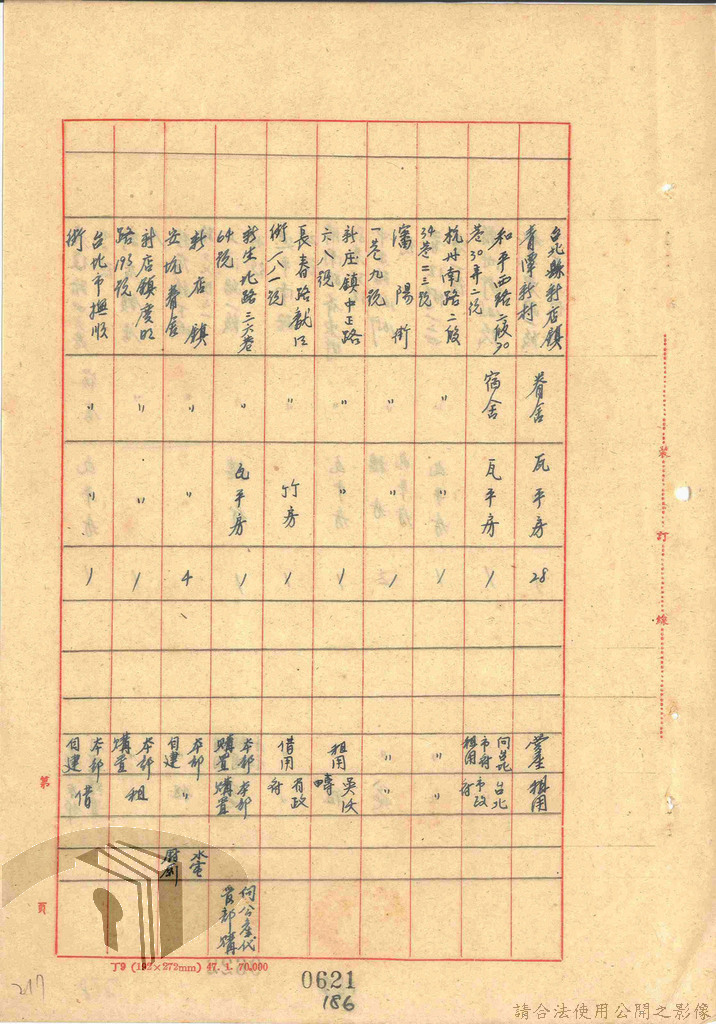 台北縣新店鎮
青潭新村
眷舍
瓦平房
28
營產
租用
和平西路二段30
巷30弄二號
宿舍
瓦平房
1
向台北
市府
租用
台北
市政
府
杭州南路二段
34巷二三號
〃
〃
1
〃
〃
瀋陽街
一巷九號
〃
〃
1
〃
〃
新庄鎮中正路
六八號
〃
〃
1
租用
長春路龍江
街八八號
〃
竹房
1
借用
新生北路三六巷
64號
〃
瓦平房
1
本部
購置
本部
購置
新店鎮
安坑眷舍
〃
〃
4
本部
自建
〃
水電
廚廁
新店鎮
路193號
〃
〃
1
本部
購置
租
台北市撫順
街
〃
〃
1
本部
自建
借
裝
訂
線
第
頁
丁9 (192×272mm) 47. 1. 70.000
0621
186
217
請合法使用公開之影像